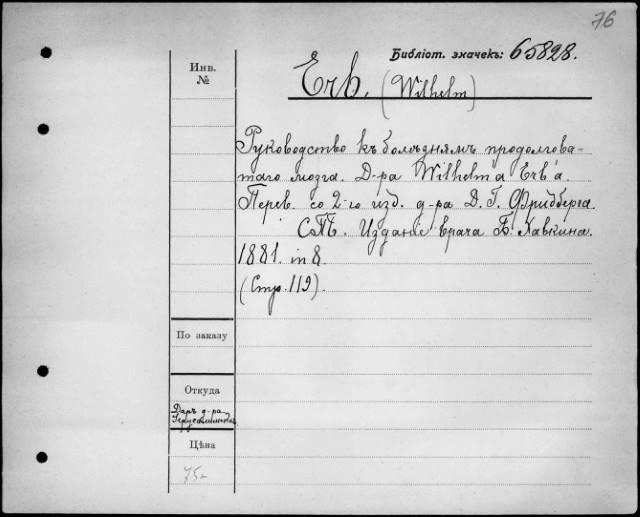 76
Библіот. значекъ: 65828.
Инв.
№
Erb. (Wilhelm)
Руководство къ болѣзнямъ продолгова-
таго мозга. Д-ра Wilhelm'a Erb'a.
Перев. со 2-го изд. д-ра Д. Г. Фридберга.
СПБ. Изданіе врача Б. Хавкина.
1881. in 8.
(Стр. 119).
По заказу
Откуда
Даръ д-ра
Цѣна
75-